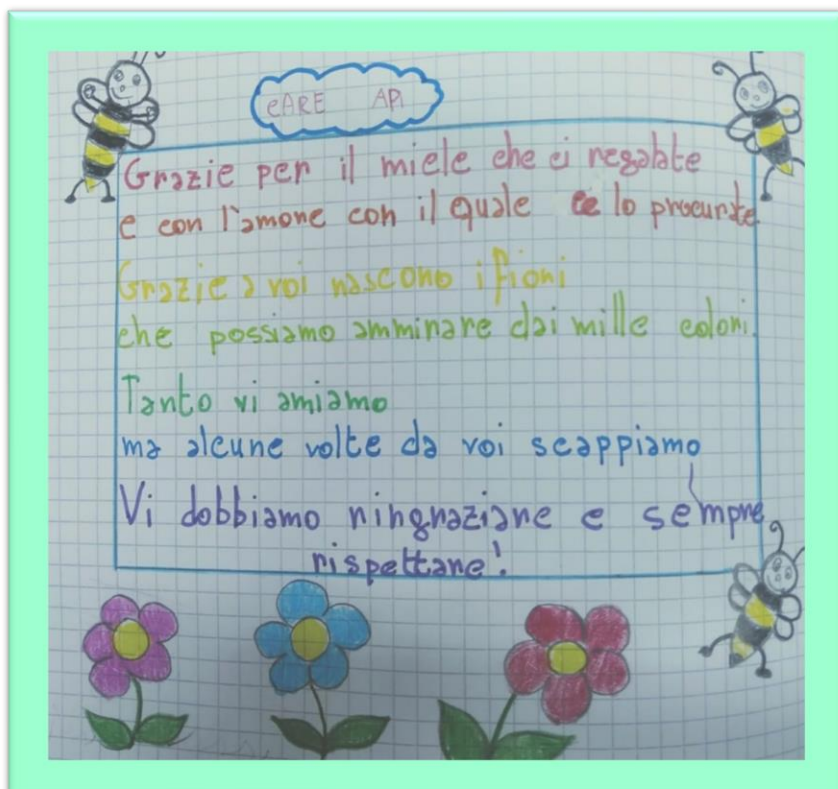 CARE API
Grazie per il miele che ci regalate
e con l'amore con il quale ce lo procurate.
Grazie a voi nascono i fiori
che possiamo ammirare dai mille colori.
Tanto vi amiamo
ma alcune volte da voi scappiamo
Vi dobbiamo ringraziare e sempre
rispettare!